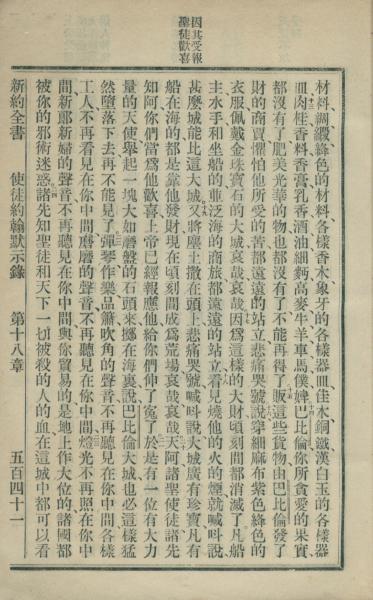 因其受報
聖徒歡喜
材料綢緞絳色的材料各樣香木象牙的各樣器皿佳木銅鐵漢白玉的各樣器
皿肉桂香料香膏乳香酒油細麪高麥牛羊車馬僕婢巴比倫你所貪愛的果實
都沒有了肥美光華的物也都沒有了不能再得了販這些貨物由巴比倫發了
財的商賈懼怕他所受的苦都遠遠的站立悲痛哭號說穿細麻布紫色絳色的
衣服佩戴金珠寶石的大城哀哉哀哉因爲這樣的大財頃刻間都消滅了凡船
主水手和坐船的並泛海的商旅都遠遠的站立看見燒他的火的煙就喊呌說
甚麽城能比這大城又將塵土撒在頭上悲痛哭號喊呌說大城廣有珍寶凡有
船在海的都是靠他發財現在頃刻間成爲荒場哀哉哀哉天阿諸聖使徒諸先
知阿你們當爲他歡喜上帝已經報應他給你們伸了寃了於是有一位有大力
量的天使舉起一塊大如磨盤的石頭來擲在海裏說巴比倫大城也必這樣猛
然墮落下去再不能見了彈琴作樂品簫吹角的聲音再不聽見在你中間各樣
工人不再看見在你中間磨磨的聲音不再聽見在你中間燈光不再照在你中
間新郞新婦的聲音不再聽見在你中間與你貿易的是地上作大位的諸國都
被你的邪術迷惑諸先知聖徒和天下一切被殺的人的血在這城中都可以看
新約全書　使徒約翰默示錄　第十八章　五百四十一